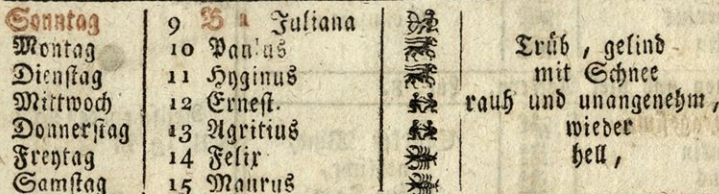 Sonntag 9 B 1 Juliana
Montag 10 Paulus Trüb , gelind
Dienstag 11 Hyginus mit Schnee
Mittwoch 12 Ernest. rauh und unangenehm ,
Donnerstag 13 Agritius wieder
Freytag 14 Felix hell ,
Samstag 15 Maurus